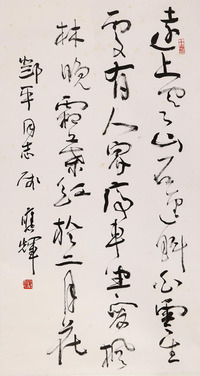 遠上寒山石逕斜白雲生
處有人家停車坐愛楓
林晚霜葉紅於二月花
鄧平同志属 應輝